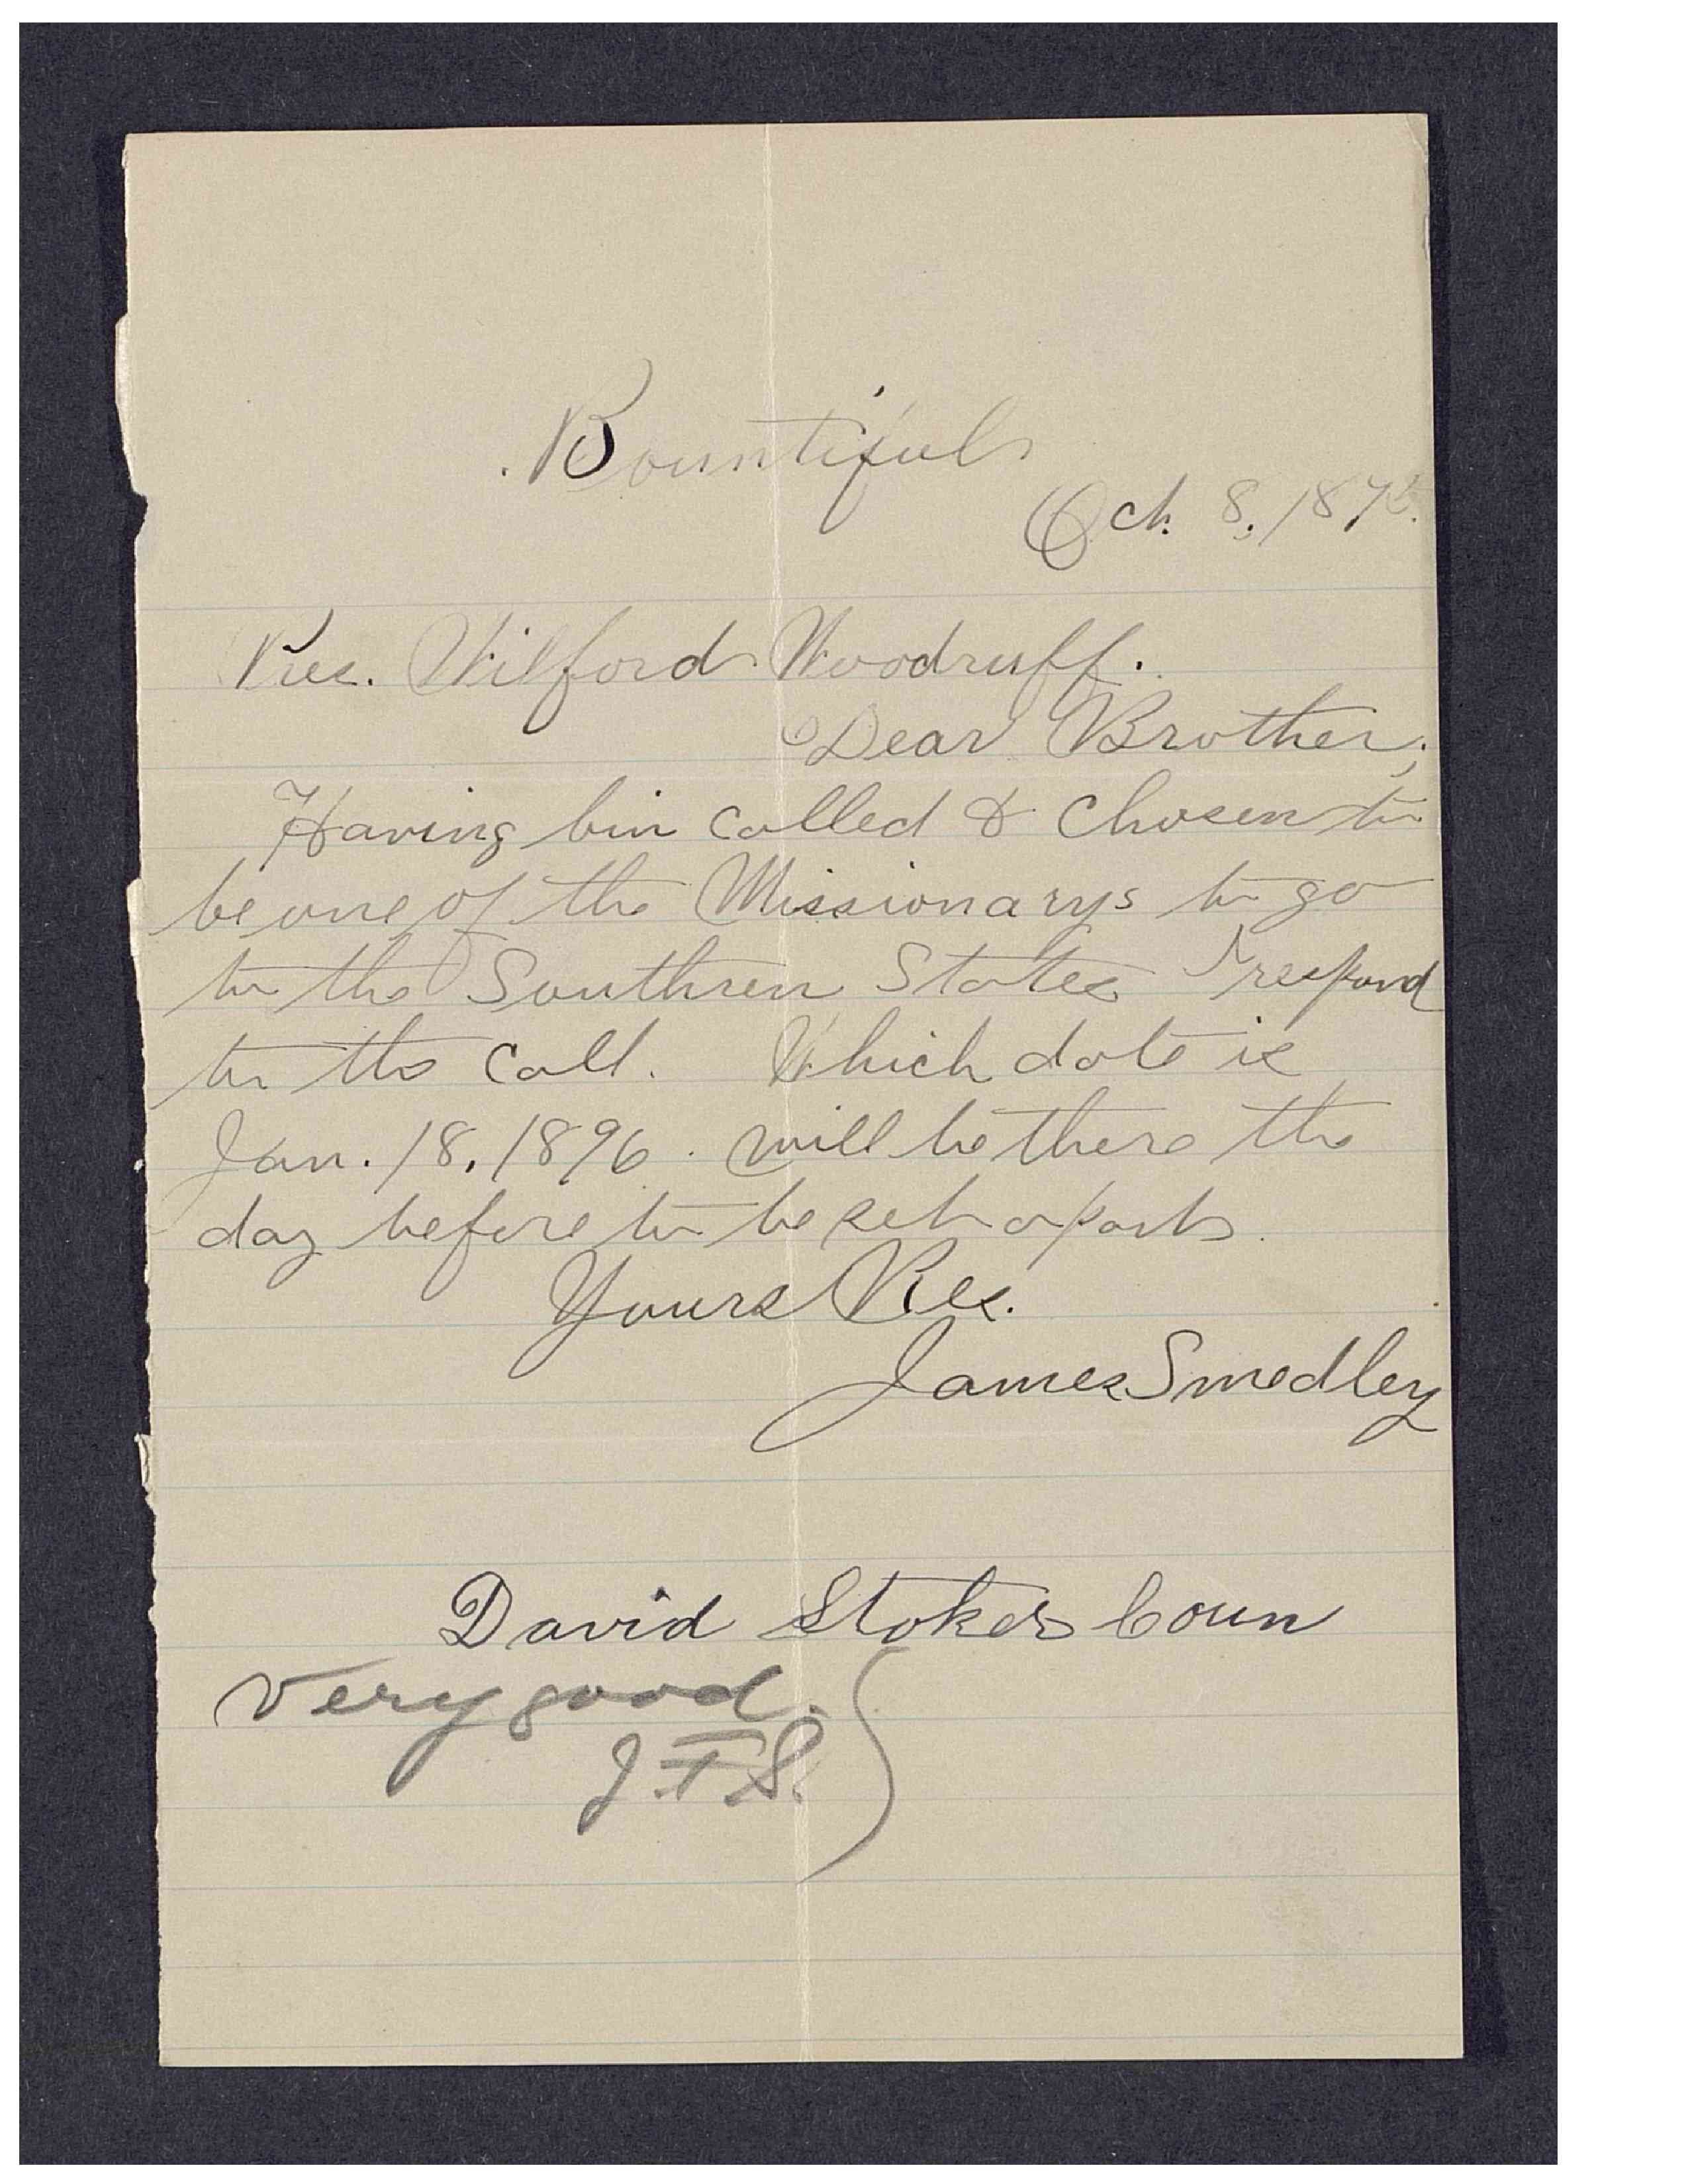 Bountiful
Oct. 8, 1875.
Pres. Wilford Woodruff.
Dear Brother;
Having bin Called & Chosen to
be one of the Missionarys to go
to the Southren States I respond
to the Call. Which date is
Jan. 18. 1896. will be there the
day before to be set apart.
Yours Res.
James Smedley
David Stoker Coun
Very good.
J. F. S.